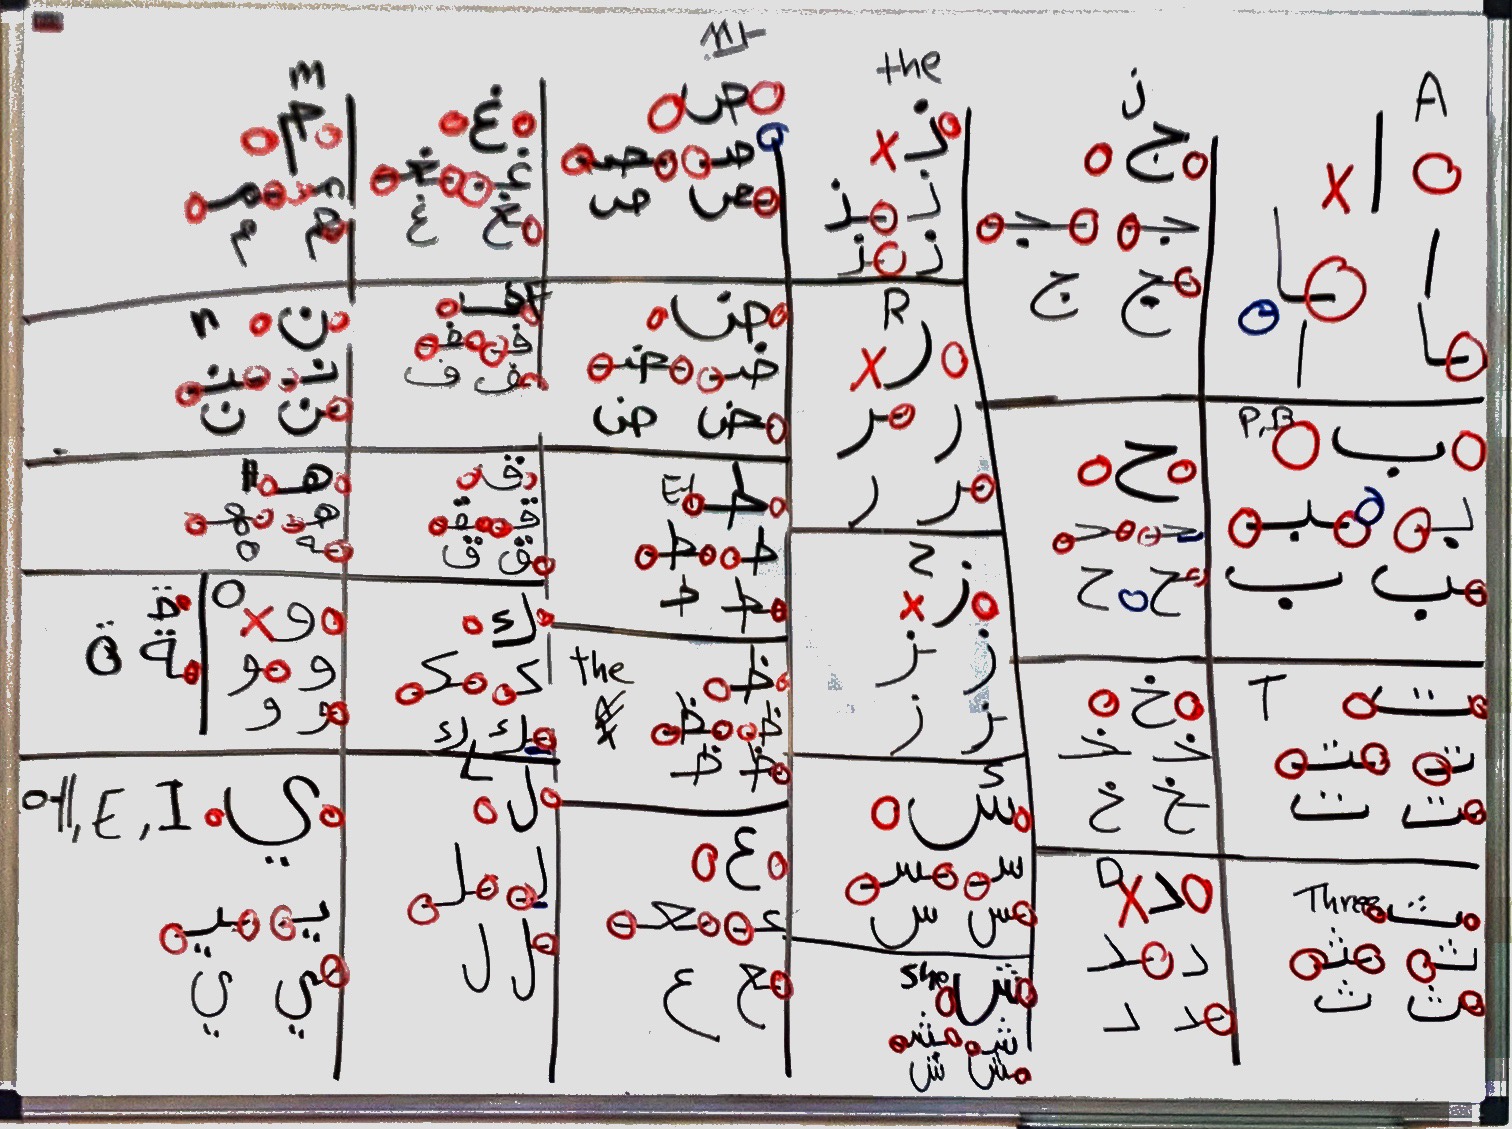 A
ا
ا ـا
ا ـا
P, B
ب
بـ ـبـ
ـب ب
T
ت
تـ ـتـ
ـت ت
Three
ث
ثـ ـثـ
ـث ث
ج
جـ ـجـ
ـج ج
ح
حـ ـحـ
ـح ح
خ
خـ ـخـ
ـخ خ
D
د
د ـد
ـد د
the
ذ
ذ ـذ
ذ ـذ
R
ر
ر ـر
ـر ر
ز
ز ـز
ـز ز
S
س
سـ ـسـ
ـس س
She
ش
شـ ـشـ
ـش ش
ص
صـ ـصـ
ـص ص
ض
ضـ ـضـ
ـض ض
ط
طـ ـطـ
ـط ط
the
ظ
ظـ ـظـ
ـظ ظ
ع
عـ ـعـ
ـع ع
غ
غـ ـغـ
ـغ غ
F
ف
فـ ـفـ
ـف ف
ق
قـ ـقـ
ـق ق
ك
كـ ـكـ
ـك ك
L
ل
لـ ـلـ
ـل ل
m
م
مـ ـمـ
ـم م
n
ن
نـ ـنـ
ـن ن
H
هـ
هـ ـهـ
ـه ه
O
و
و و
ـو و
ة
ـة ة
ي I, E,
يـ ـيـ
ـي ي